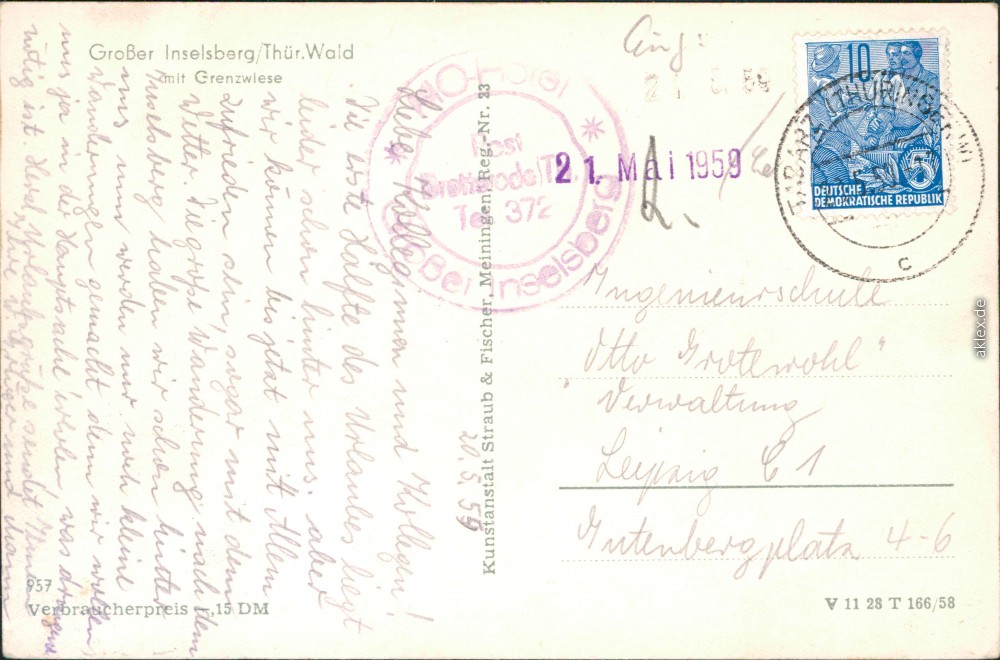 Großer Inselsberg/Thür.Wald
mit Grenzwiese
Liebe Kolleginnen und Kollegen!
Die erste Hälfte des Urlaubes liegt
leider schon hinter uns. aber
wir können bis jetzt mit Allem
zufrieden sein, sogar mit dem
Wetter. Die grosse Wanderung nach dem
Inselsberg haben wir schon hinter
uns, nun werden nur noch kleine
Wanderungen gemacht denn wir wollen
uns ja in der Hauptsache erholen, was dringend
nötig ist. Herzl. Urlaubsgrüsse sendet Ihnen
und Mann
957
Verbraucherpreis -,15 DM
20.5.59
Kunstanstalt Straub & Fischer, Meiningen Reg.-Nr. 23
HO-Hotel
Post
Brotterode/Th.
Tel. 372
Großer Inselsberg
Eing:
21. Mai 1959
10
DEUTSCHE
DEMOKRATISCHE REPUBLIK
5
TABARZ (THÜRINGER W)
c
Ingenieurschule
"Otto Grotewohl"
Verwaltung
Leipzig C 1
Gutenbergplatz 4-6
V 11 28 T 166/58
aklex.de